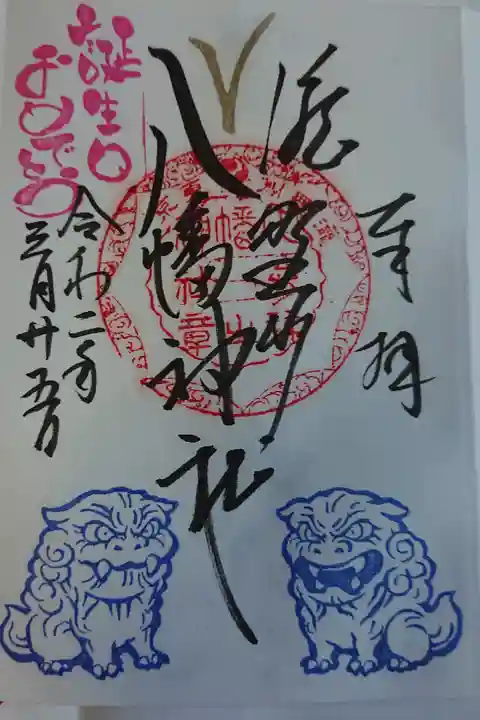 奉拝
瀧野川
八幡神社
令和二年
三月廿五日
誕生日
おめでとう